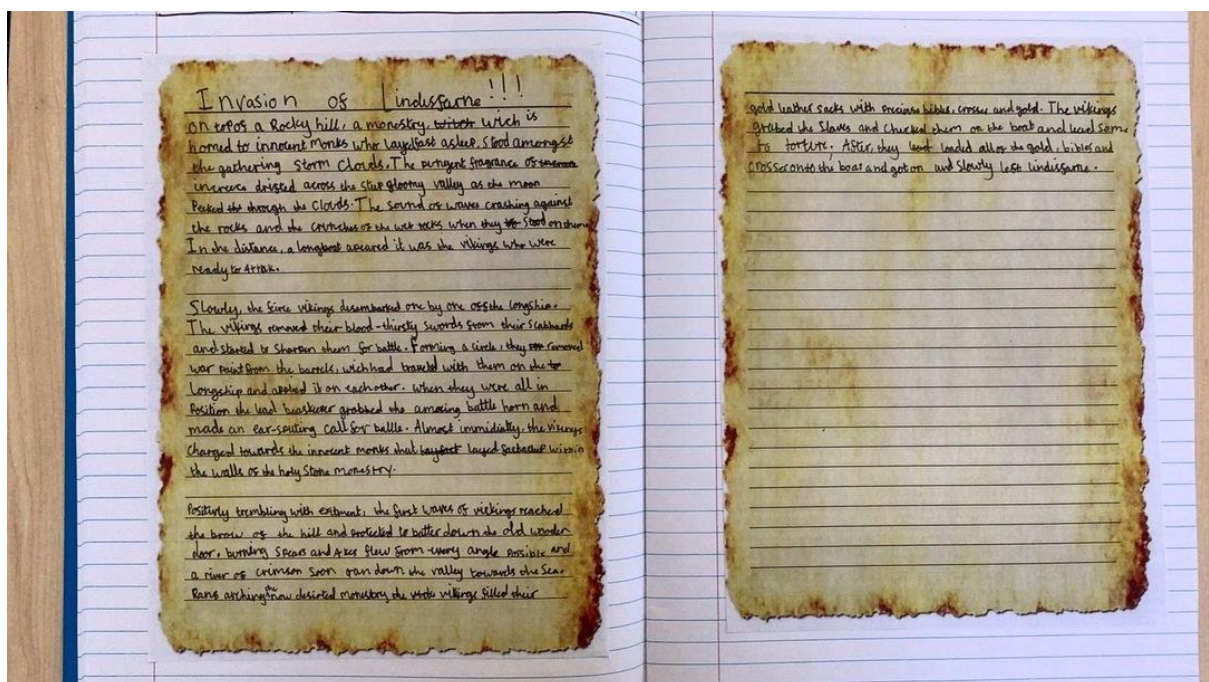 Invasion of Lindissarne!!!
on topos a Rocky hill, a monestry. wich is
homed to innocent monks who layed fast asleep. Stood amongst
the gathering Storm Clouds. The pungent fragrance of
incence drifted across the gloomy valley as the moon
Peeked through the Clouds. The Sound of waves crashing against
the rocks and the crunches of the wet rocks when they Stood on them
In the distance, a longboat apeared it was the vikings who were
ready to Attak.
Slowly, the feirce vikings desembarked one by one off the longship.
The vikings removed their blood-thirsty Swords from their Scabbards
and started to Sharpen them for battle. Forming a circle, they removed
war paint from the barrels, wich had traveld with them on the
Longship and applied it on eachother. When they were all in
Position the lead grabbed the amazing battle horn and
made an ear-spliting call for battle. Almost immidiatly, the vikings
Charged towards the innocent monks that layed fastasleep within
the walls of the holy Stone monestry.
Positivly trembling with exitment, the first waves of vickings reached
the brow of the hill and to batter down the old wooden
door, burning Spears and Axes flew from every angle Possible and
a river of crimson Soon ran down the valley towards the Sea.
the now desirted monestry the vikings filled their
gold leather Sacks with precious bibles, crosses and gold. The vikings
grabed the Slaves and Chucked them on the boat and Some
to torture. After, they loaded all of the gold, bibles and
crosses onto the boat and got on and Slowly left lindissarne.